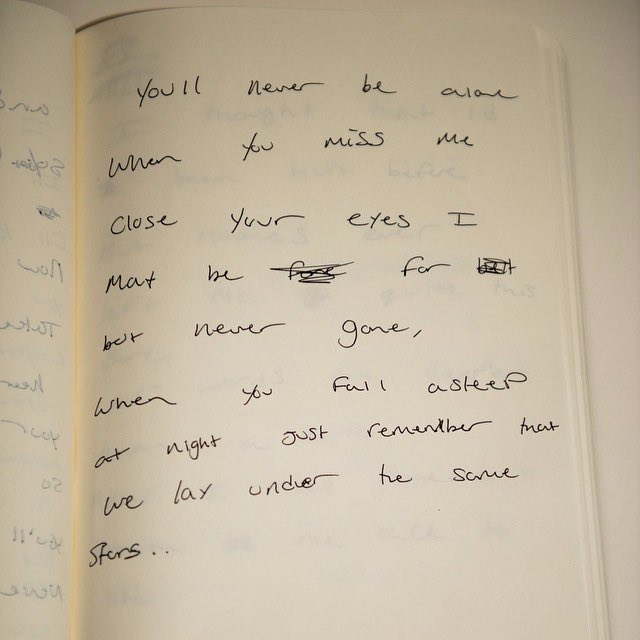 You'll never be alone
when you miss me
close your eyes I
mat be for
but never gone,
when you fall asleep
at night just remember that
we lay under the same
stars..
and
Now
Take
her
your
so
You'll
Never